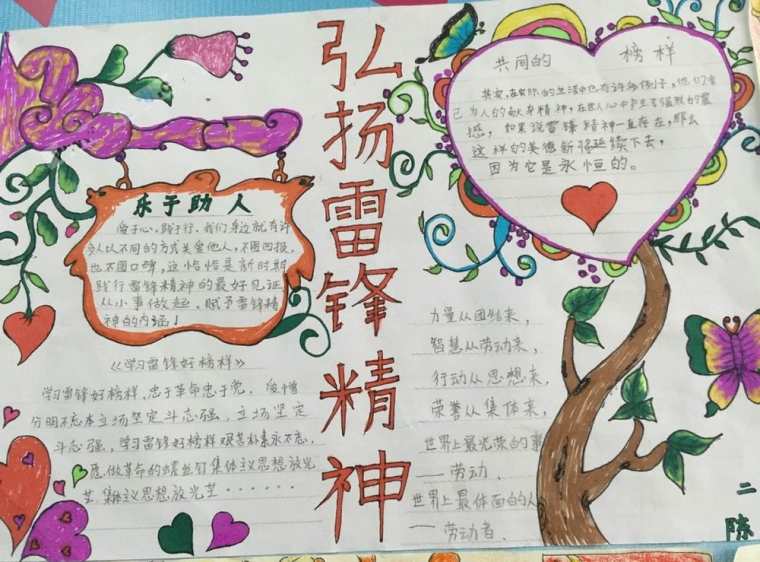 弘扬雷锋精神
乐于助人
爱于心，践于行，我们身边就有许
多人以不同的方式关爱他人，不图回报，
也不图口碑，这恰恰是新时期
践行雷锋精神的最好见证
从小事做起，赋予雷锋精
神的内涵！
《学习雷锋好榜样》
学习雷锋好榜样，忠于革命忠于党，爱憎
分明不忘本立场坚定斗志强，立场坚定
斗志强，学习雷锋好榜样艰苦朴素永不忘，
愿做革命的螺丝钉集体主义思想放光
芒，集体主义思想放光芒……
共同的 榜样
其实，在我们的生活中也有许多例子，他们舍
己为人的献身精神，在世人心中产生着强烈的震
感，如果说雷锋精神一直存在，那么
这样的美德新 延续下去，
因为它是永恒的。
力量从团结来，
智慧从劳动来，
行动从思想来，
荣誉从集体来，
世界上最光荣的事
——劳动、
世界上最体面的人
——劳动者、
二
陈